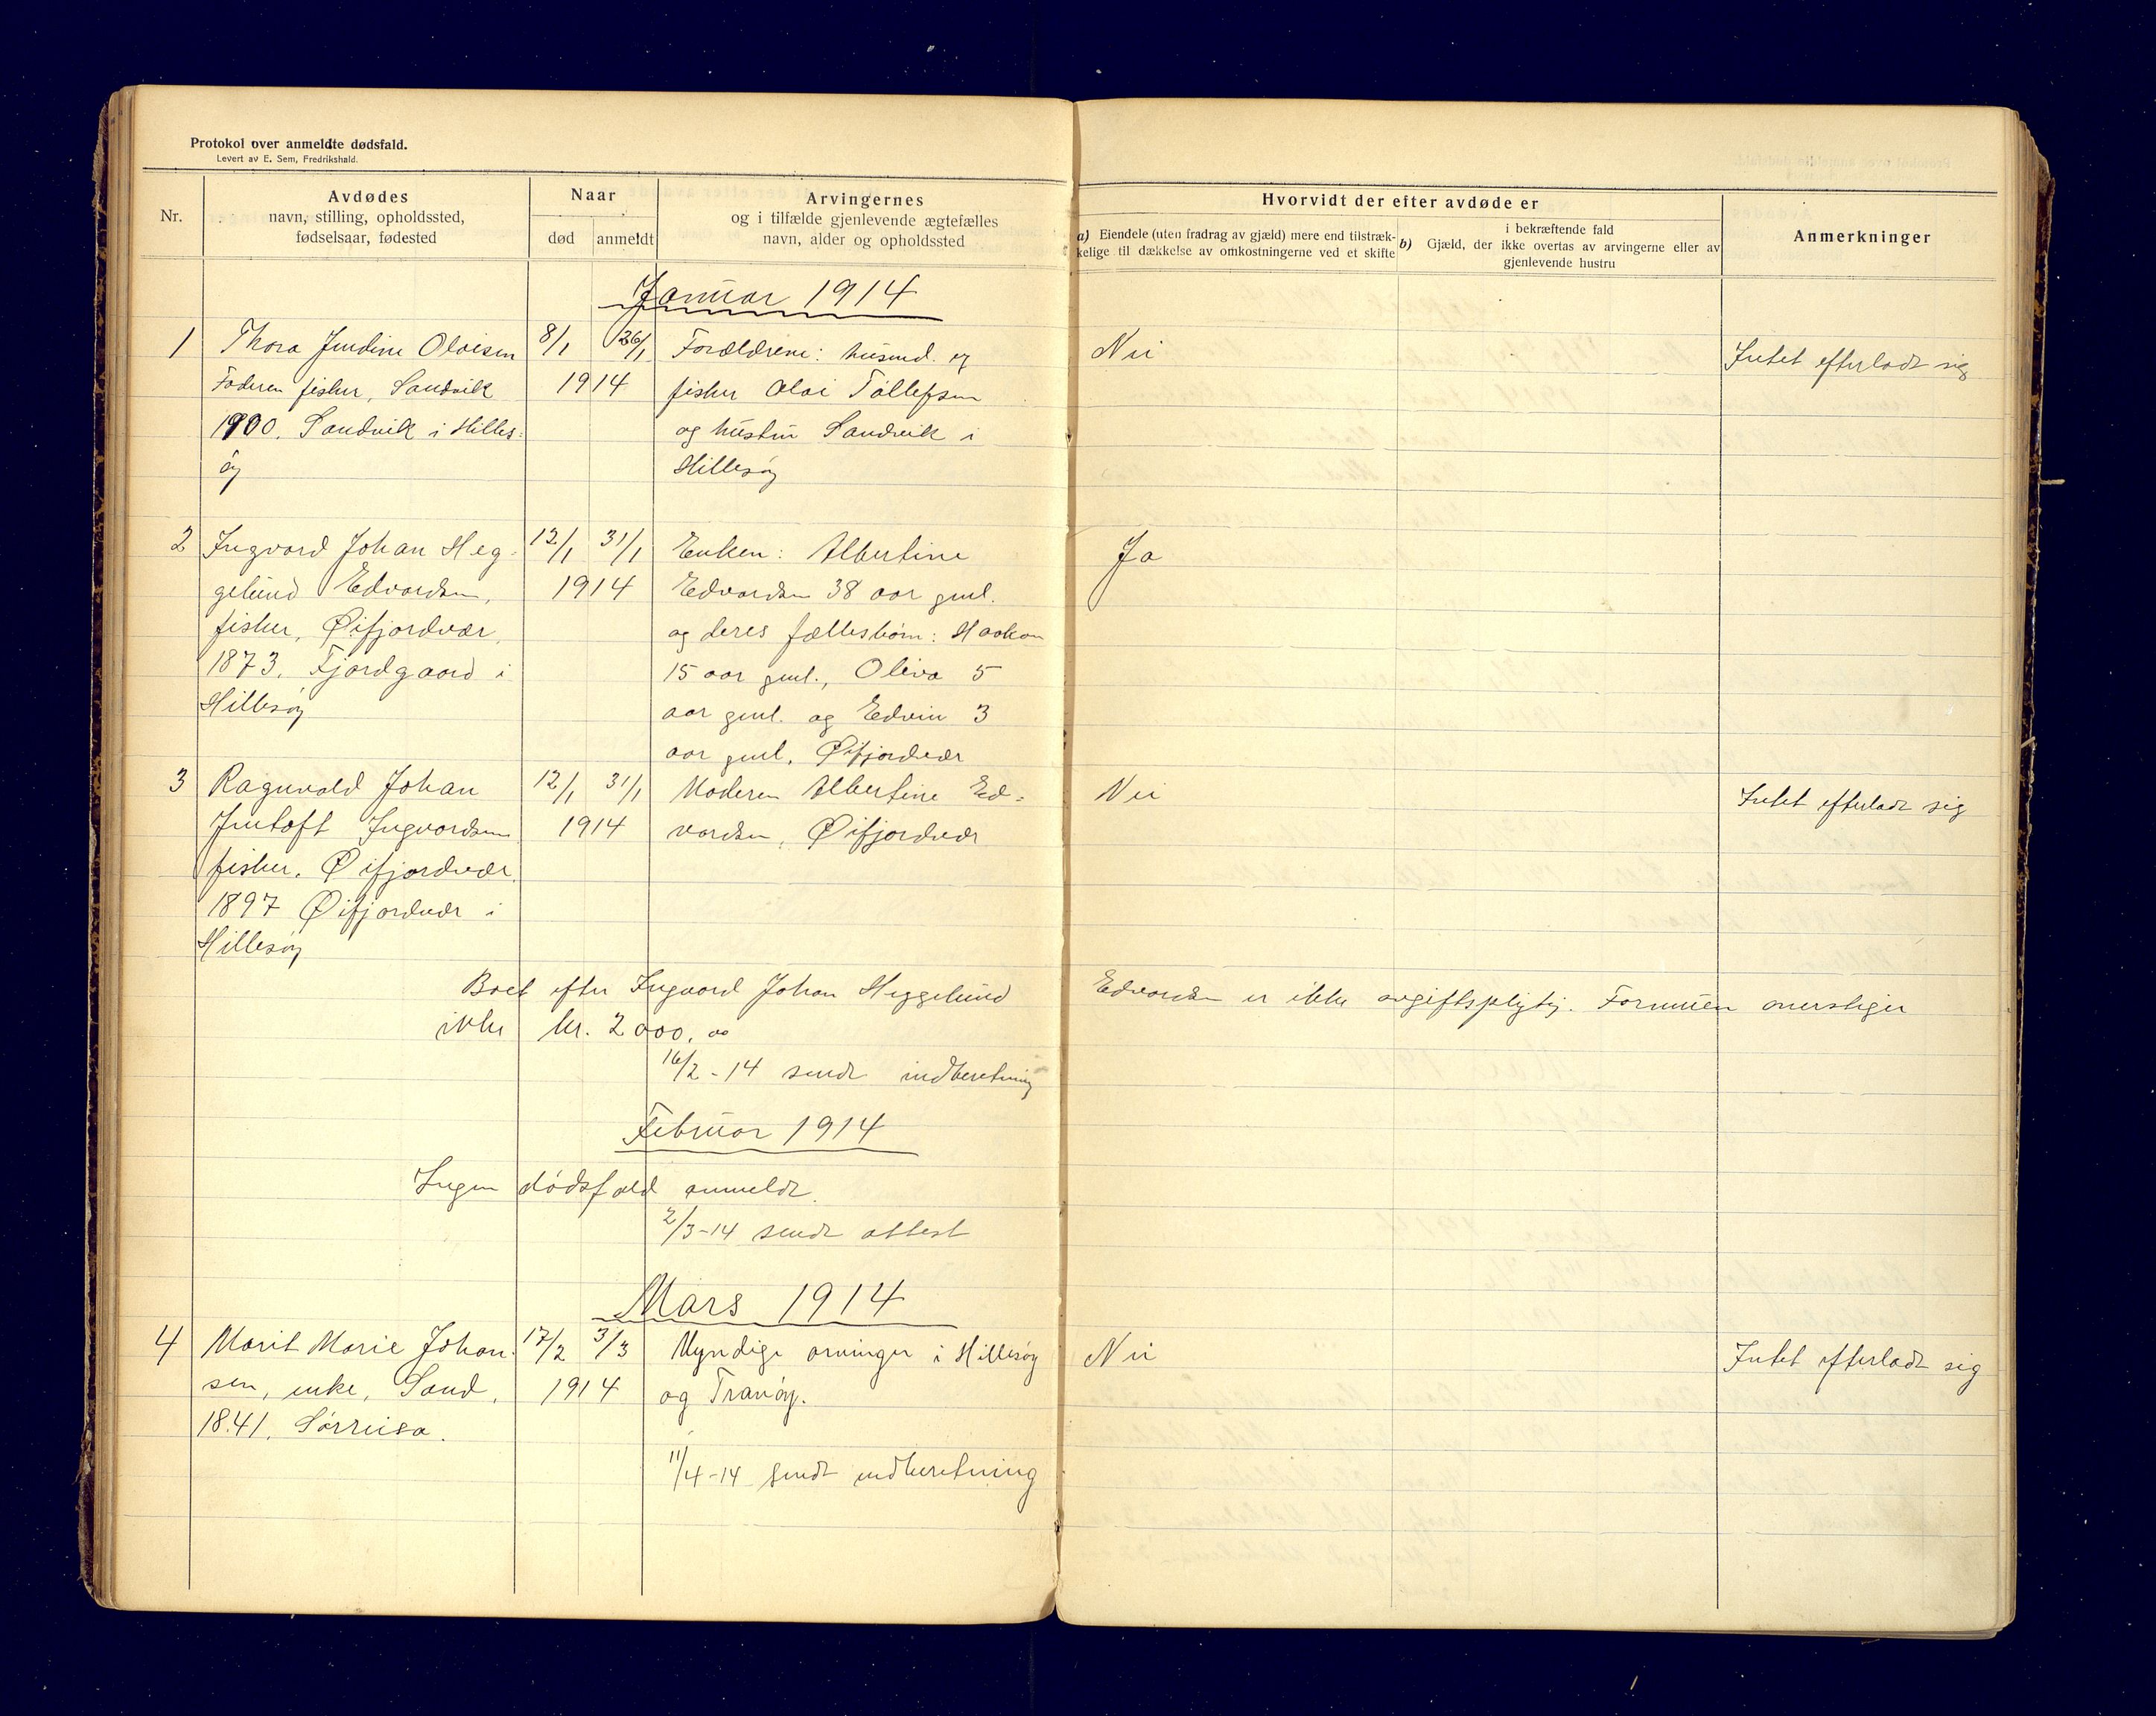 Protokol over anmeldte dødsfald.
Levert av E. Sem, Fredrikshald.
Nr.
Avdødes
navn, stilling, opholdssted,
fødselsaar, fødested
Naar
død
anmeldt
Arvingernes
og i tilfælde gjenlevende ægtefælles
navn, alder og opholdssted
Hvorvidt der efter avdøde er
a) Eiendele (uten fradrag av gjæld) mere end tilstræk-
kelige til dækkelse av omkostningerne ved et skifte
i bekræftende fald
b) Gjæld, der ikke overtas av arvingerne eller av
gjenlevende hustru
Anmerkninger
Januar 1914
1
Thora Jendine Olaisen
Faderen fisker, Sandvik
1900. Sandvik i Hilles-
øy
8/1 26/1
1914
Forældrene: husmd. og
fisker Olai Tollefsen
og hustru Sandvik i
Hillesøy
Nei
Intet efterladt sig
2
Ingvard Johan Heg-
gelund Edvardsen,
fisker, Øifjordvær,
1873. Fjordgaard i
Hillesøy
12/1 31/1
1914
Enken: Albertine
Edvardsen 38 aar gml.
og deres fællesbørn: Haakon
15 aar gml., Oliva 5
aar gml. og Edvin 3
aar gml. Øifjordvær
Ja
3
Ragnvald Johan
Jentoft Ingvardsen
fisker. Øifjordvær.
1897 Øifjordvær i
Hillesøy
12/1 31/1
1914
Moderen Albertine Ed-
vardsen, Øifjordvær
Nei
Intet efterladt sig
Boet efter Ingvard Johan Heggelund Edvardsen er ikke avgiftspligtig. Formuen overstiger
ikke kr. 2000,00
16/2-14 sendt indberetning
Februar 1914
Ingen dødsfald anmeldt.
2/3-14 sendt attest
Mars 1914
4
Marit Marie Johan-
sen, enke, Sand,
1841. Sørreisa.
17/2 3/3
1914
Myndige arvinger i Hillesøy
og Tranøy.
Nei
Intet efterladt sig
11/4-14 sendt indberetning